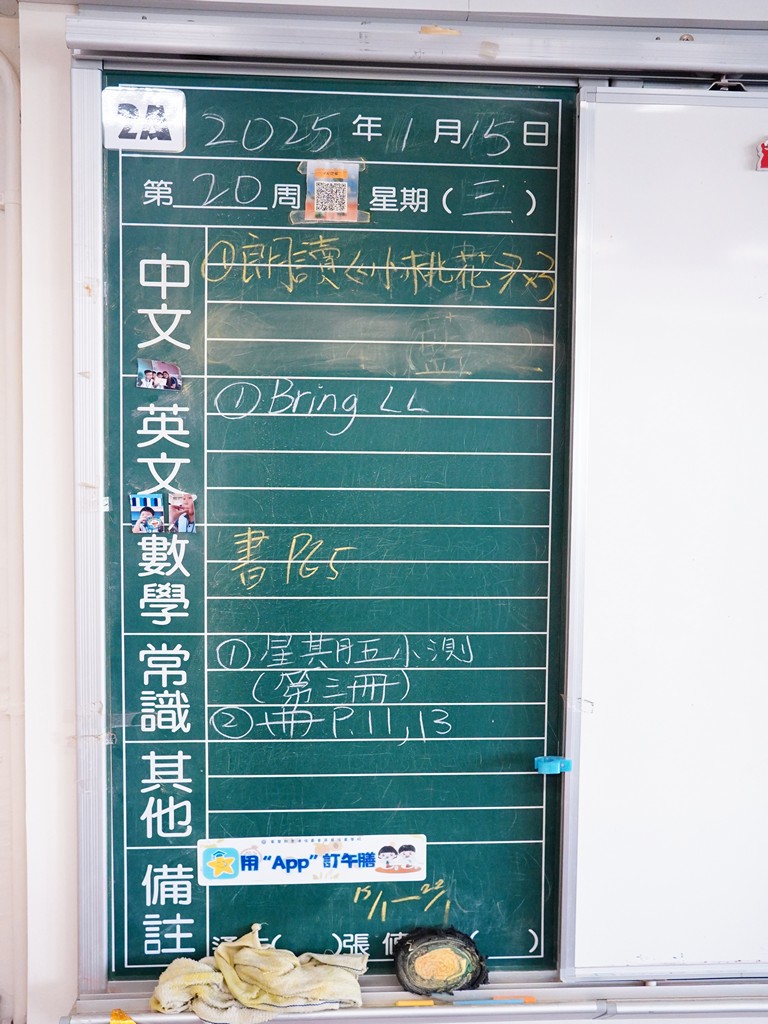 2A 2025年1月15日
第20周 星期(三)
中文
①朗讀《小桃花》x3
英文
①Bring LL
數學
書 P65
常識
①星期五小測
(第三冊)
②冊 P.11,13
其他
用“App”訂午膳
備註
15/1—22/1
( )張 ( )